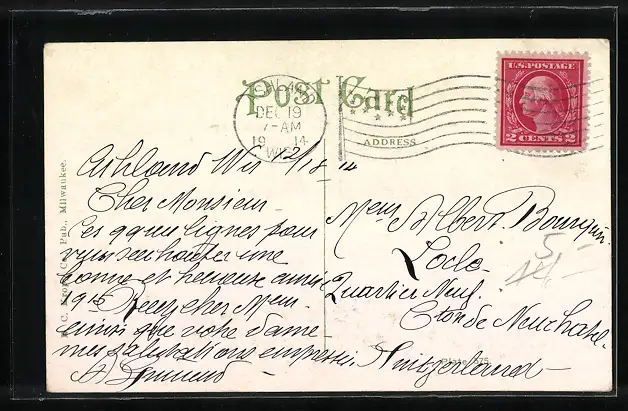 Post Card
ASHLAND
DEC 19
7-AM
19 14
WIS.
U.S. POSTAGE
2 CENTS 2
ADDRESS
Pub., Milwaukee.
Ashland Wis 12/18 14
Cher Monsieur
Ces qque lignes pour
vous souhaiter une
bonne et heureuse année
1915 Recevez cher Mons
ainsi que votre dame
mes salutations empressées
Mons Albert
Locle
Quartier Neuf.
Cton de Neuchatel.
Switzerland
5-